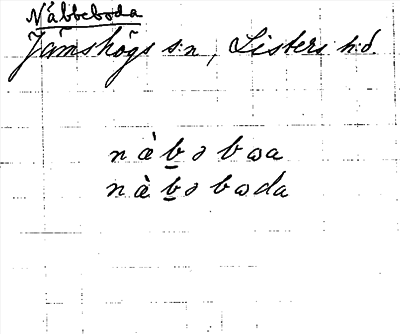 Näbbeboda
Jämshögs s:n, Listers h:d.
n à b ə b ω a
n à b ə b ω d a